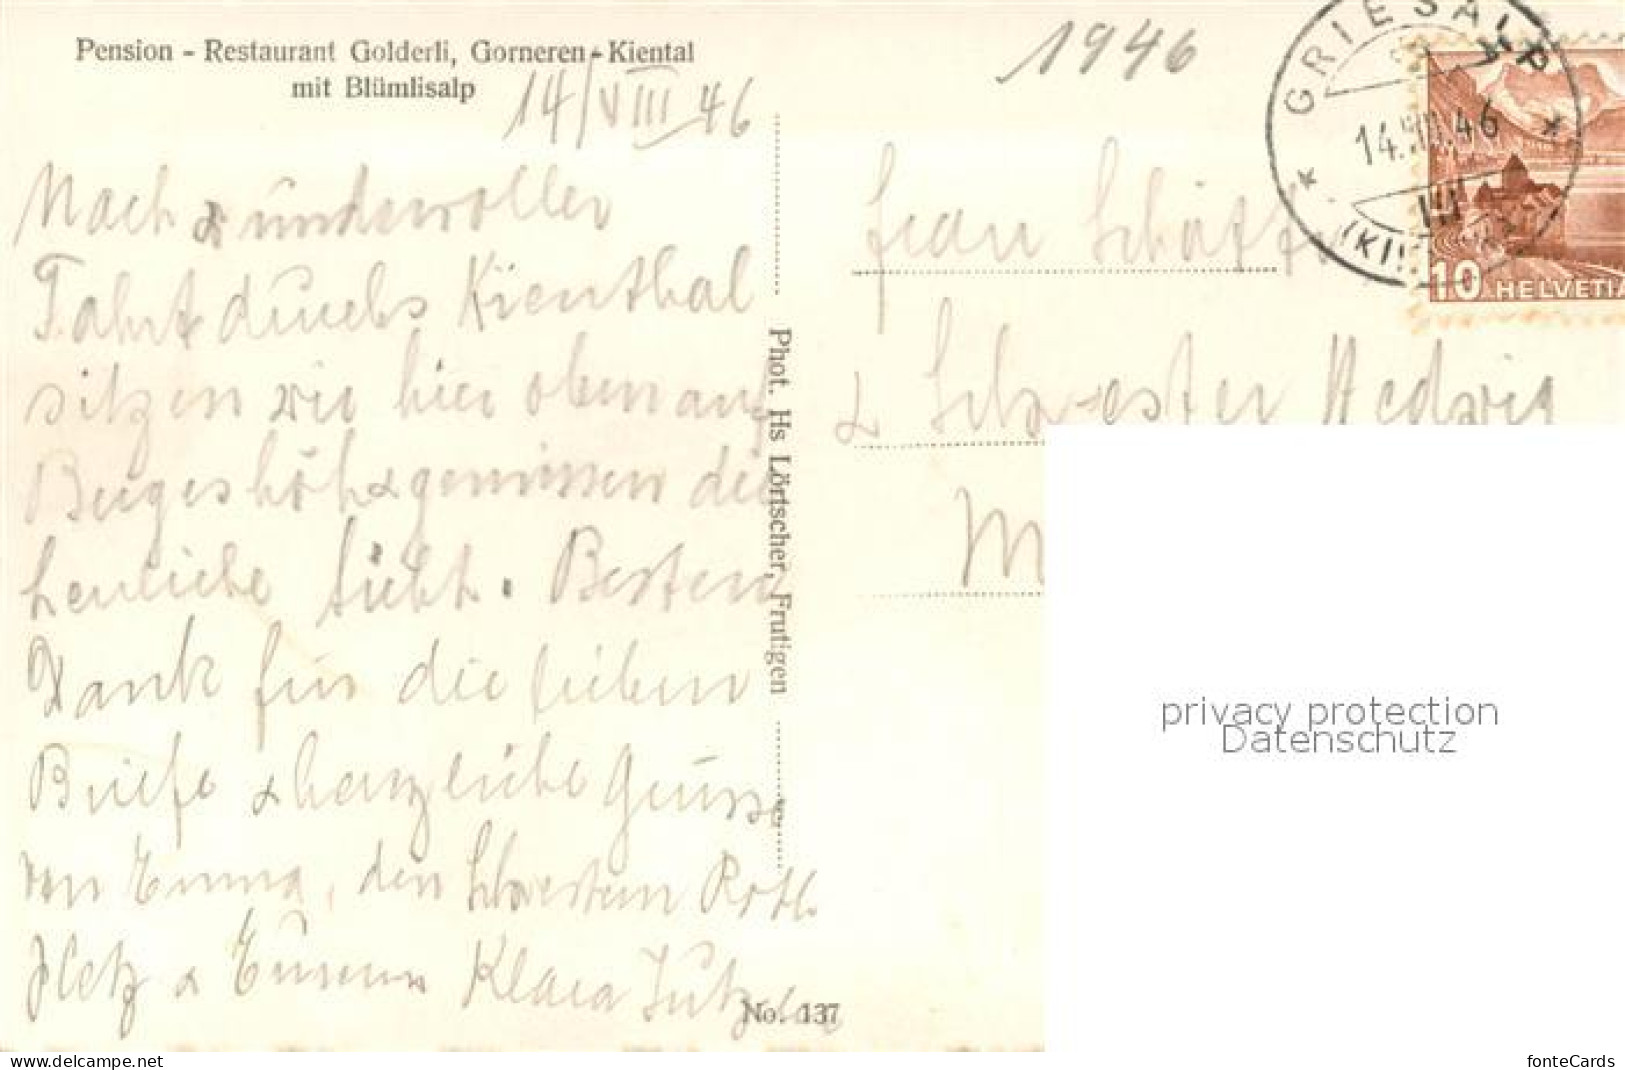 Pension - Restaurant Golderli, Gorneren-Kiental
mit Blümlisalp
14/VIII 46
1946
GRIESALP
14.VIII.46
10 HELVETIA
Nach wundervoller
Fahrt durchs Kienthal
sitzen wir hier oben auf
Bergeshöh & geniessen die
herrliche
Besten
Dank für die lieben
Briefe & herzliche Grüsse
von Emma, den Schwestern Roth
&
Klara
Jean
& Schwester Hedwig
M
Phot. Hs Lörtscher, Frutigen
No. 137
privacy protection
Datenschutz
www.delcampe.net
fonteCards